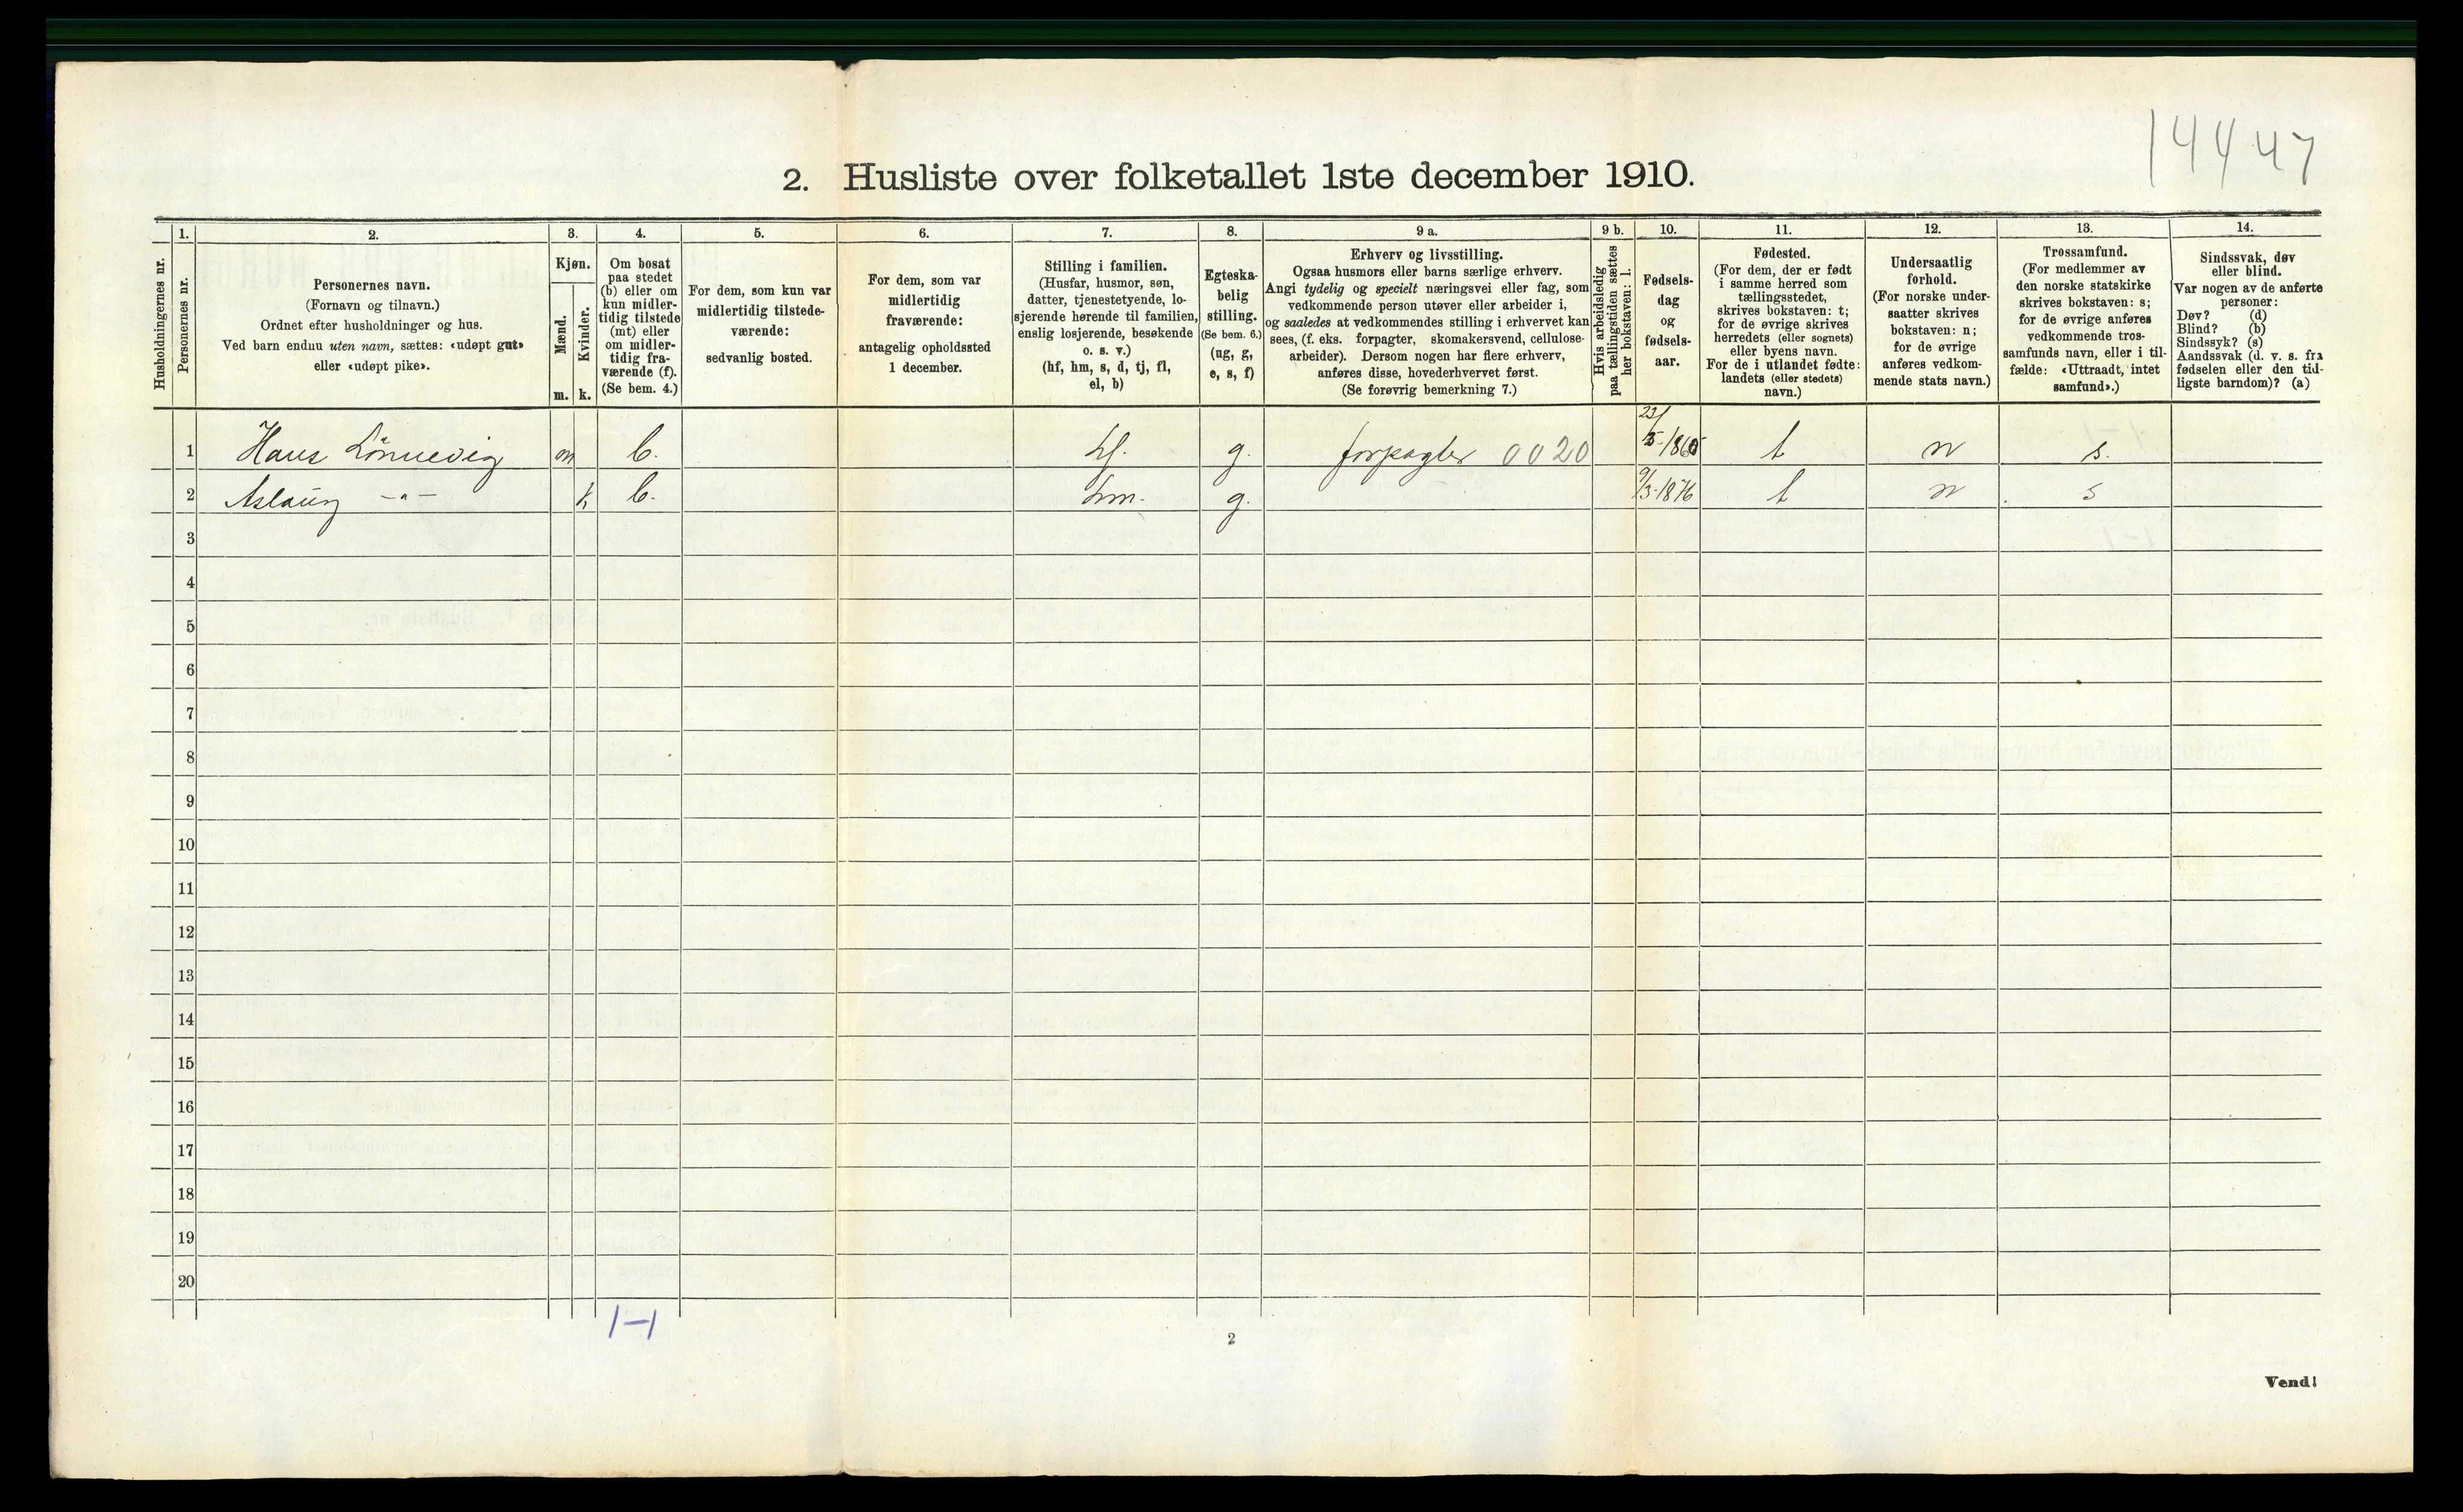 14447
2. Husliste over folketallet 1ste december 1910.
Husholdningernes nr.
1.
Personernes nr.
2.
Personernes navn.
(Fornavn og tilnavn.)
Ordnet efter husholdninger og hus.
Ved barn endnu uten navn, sættes: «udøpt gut»
eller «udøpt pike».
3.
Kjøn.
Mænd.
Kvinder.
m. k.
4.
Om bosat
paa stedet
(b) eller om
kun midler-
tidig tilstede
(mt) eller
om midler-
tidig fra-
værende (f).
(Se bem. 4.)
5.
For dem, som kun var
midlertidig tilstede-
værende:
sedvanlig bosted.
6.
For dem, som var
midlertidig
fraværende:
antagelig opholdssted
1 december.
7.
Stilling i familien.
(Husfar, husmor, søn,
datter, tjenestetyende, lo-
sjerende hørende til familien,
enslig losjerende, besøkende
o. s. v.)
(hf, hm, s, d, tj, fl,
el, b)
8.
Egteska-
belig
stilling.
(Se bem. 6.)
(ug, g,
e, s, f)
9 a.
Erhverv og livsstilling.
Ogsaa husmors eller barns særlige erhverv.
Angi tydelig og specielt næringsvei eller fag, som
vedkommende person utøver eller arbeider i,
og saaledes at vedkommendes stilling i erhvervet kan
sees, (f. eks. forpagter, skomakersvend, cellulose-
arbeider). Dersom nogen har flere erhverv,
anføres disse, hovederhvervet først.
(Se forøvrig bemerkning 7.)
9 b.
Hvis arbeidsledig
paa tællingstiden sættes
her bokstaven: l.
10.
Fødsels-
dag
og
fødsels-
aar.
11.
Fødested.
(For dem, der er født
i samme herred som
tællingsstedet,
skrives bokstaven: t;
for de øvrige skrives
herredets (eller sognets)
eller byens navn.
For de i utlandet fødte:
landets (eller stedets)
navn.)
12.
Undersaatlig
forhold.
(For norske under-
saatter skrives
bokstaven: n;
for de øvrige
anføres vedkom-
mende stats navn.)
13.
Trossamfund.
(For medlemmer av
den norske statskirke
skrives bokstaven: s;
for de øvrige anføres
vedkommende tros-
samfunds navn, eller i til-
fælde: «Uttraadt, intet
samfund».)
14.
Sindssvak, døv
eller blind.
Var nogen av de anførte
personer:
Døv? (d)
Blind? (b)
Sindssyk? (s)
Aandssvak (d. v. s. fra
fødselen eller den tid-
ligste barndom)? (a)
1 Hans Lönnevig m b. hf. g. forpagter 0020 23/5-1865 t n s.
2 Aslaug -"- k b. hm. g. 9/3-1876 t n s
3
4
5
6
7
8
9
10
11
12
13
14
15
16
17
18
19
20
1-1
2
Vend!